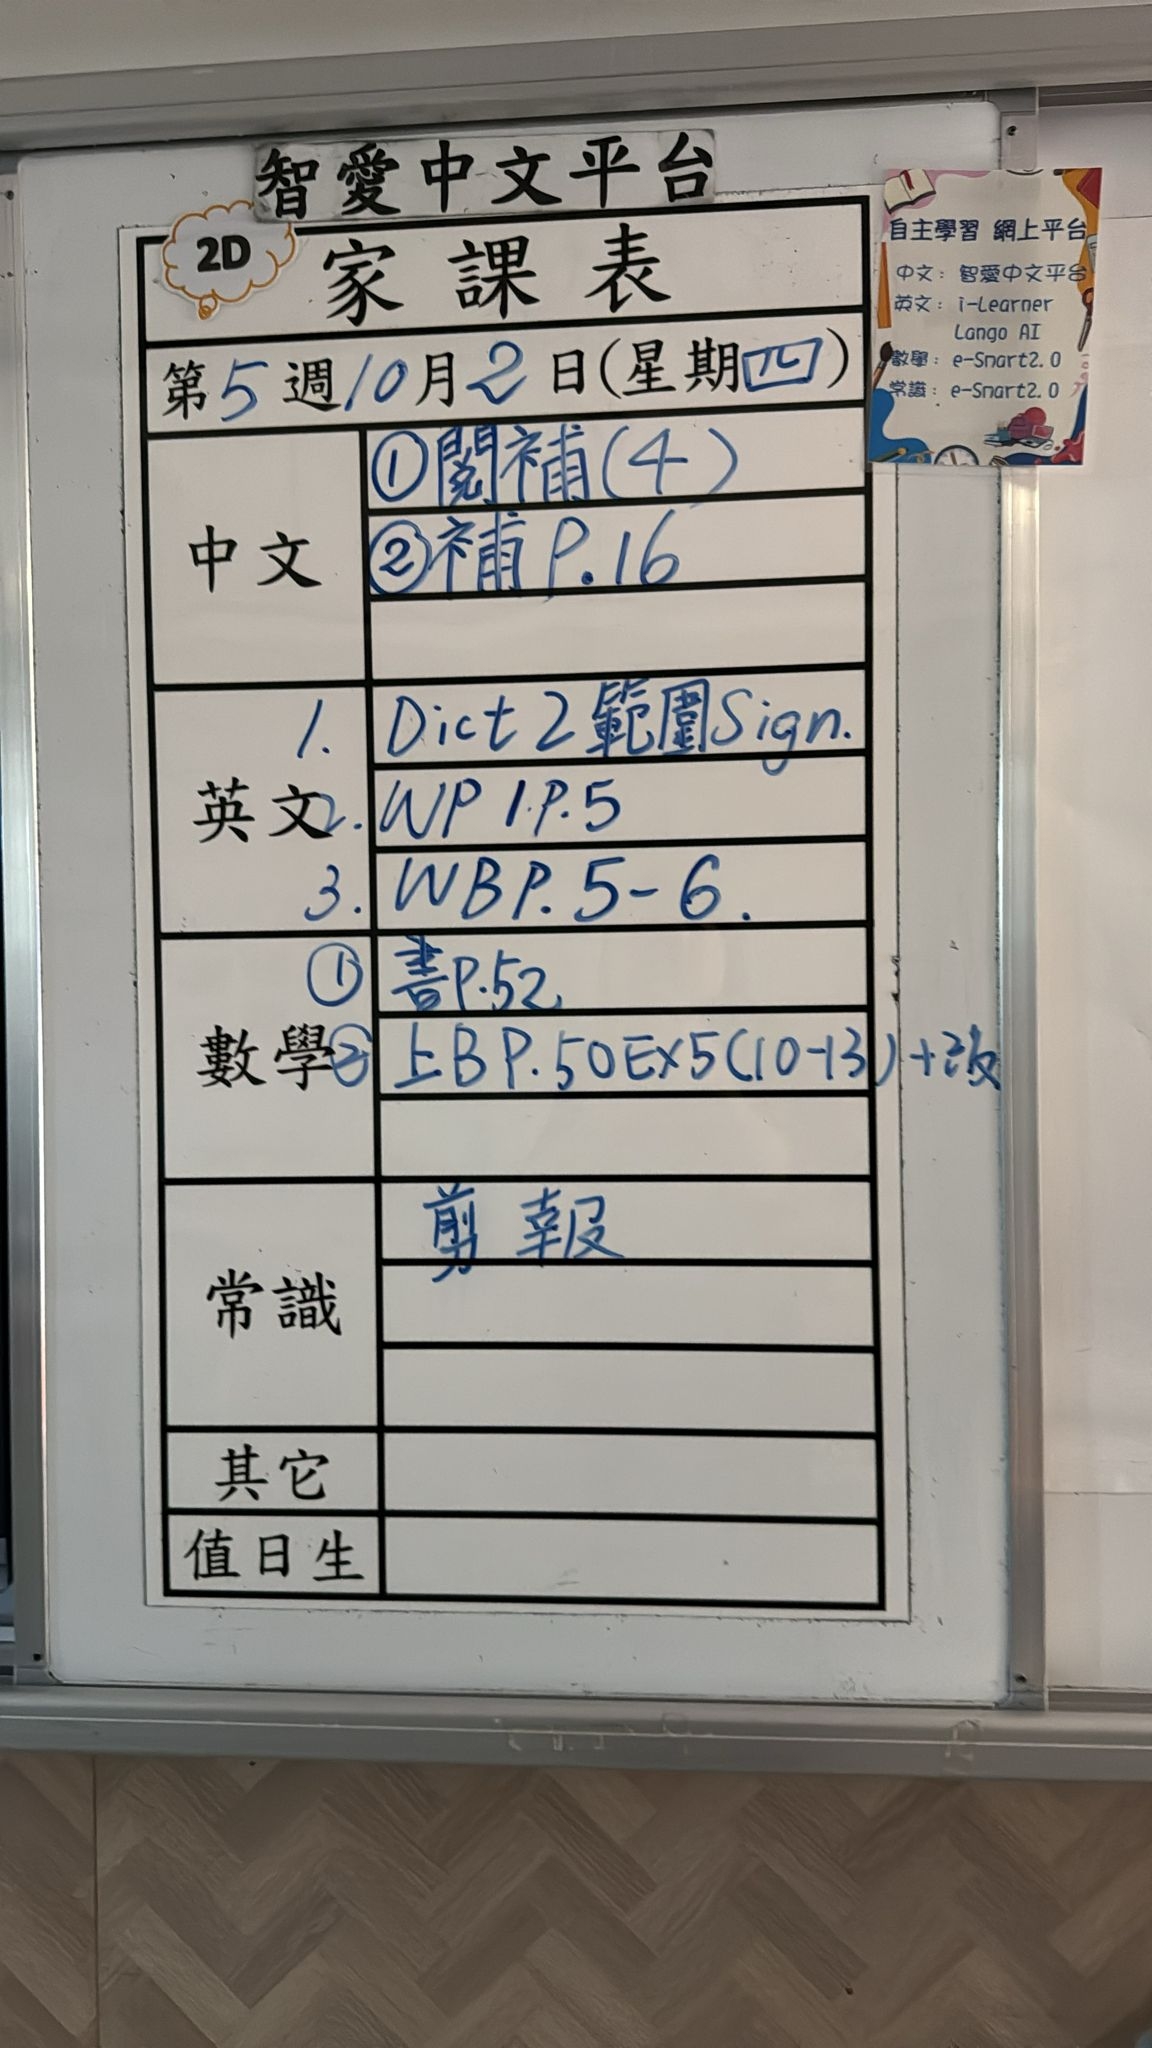 智愛中文平台
2D
家課表
第5週10月2日(星期四)
中文
①閱補(4)
②補P.16
英文
1. Dict 2 範圍Sign.
2. WP 1.P.5
3. WBP. 5-6.
數學
① 書P.52
② 上BP.50EX5(10-13)+改
常識
剪報
其它
值日生
自主學習 網上平台
中文：智愛中文平台
英文：i-Learner
Lango AI
數學：e-Smart2.0
常識：e-Smart2.0